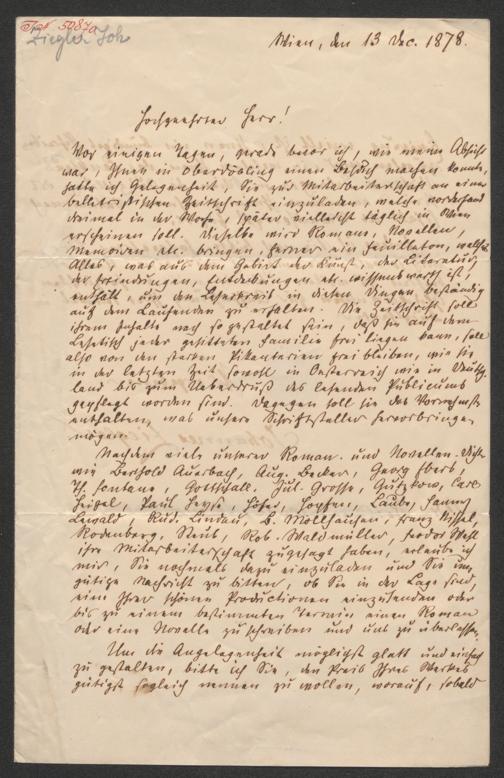 Ziegler Joh
Wien, den 13 Dec. 1878.
Hochgeehrter Herr!
Vor einigen Tagen, gerade bevor ich, wie meine Absicht
war, Ihnen in Oberdöbling einen Besuch machen konnte,
hatte ich Gelegenheit, Sie zur Mitarbeiterschaft an einer
belletristischen Zeitschrift einzuladen, welche vorderhand
dreimal in der Woche, später vielleicht täglich in Wien
erscheinen soll. Dieselbe wird Romane, Novellen,
Memoiren etc. bringen, ferner ein Feuilleton, welches
Alles, was aus dem Gebiet der Kunst, der Literatur,
der Erfindungen, Entdeckungen etc. wissenswerth ist,
enthält, um den Leserkreis in diesen Dingen beständig
auf dem Laufenden zu erhalten. Die Zeitschrift soll
ihrem Inhalte nach so gestaltet sein, daß sie auf dem
Lesetisch jeder gesitteten Familie frei liegen kann, soll
also von den starken Pikanterien frei bleiben, wie sie
in der letzten Zeit sowohl in Oesterreich wie in Deutsch
land bis zum Ueberdruß des lesenden Publicums
gepflegt worden sind. Dagegen soll sie das Vornehmste
enthalten, was unsere Schriftsteller hervorbringen
mögen.
Nachdem viele unserer Roman- und Novellen-Dichter
wie Berthold Auerbach, Aug. Becker, Georg Ebers,
Th. Fontane, Gottschall, Jul. Grosse, Gutzkow, Carl
Heigel, Paul Heyse, Höfer, Hopfen, Laube, Fanny
Lewald, Rud. Lindau, B. Möllhausen, Franz Nissel,
Rodenberg, Rob. Waldmüller, Feodor Wehl
ihre Mitarbeiterschaft zugesagt haben, erlaube ich
mir, Sie nochmals dazu einzuladen und Sie um
gütige Nachricht zu bitten, ob Sie in der Lage sind,
eine Ihrer schönen Productionen einzusenden oder
bis zu einem bestimmten Termin einen Roman
oder eine Novelle zu schreiben und uns zu überlassen.
Um die Angelegenheit möglichst glatt und einfach
zu gestalten, bitte ich Sie, den Preis Ihres Werkes
gütigst sogleich nennen zu wollen, worauf, sobald